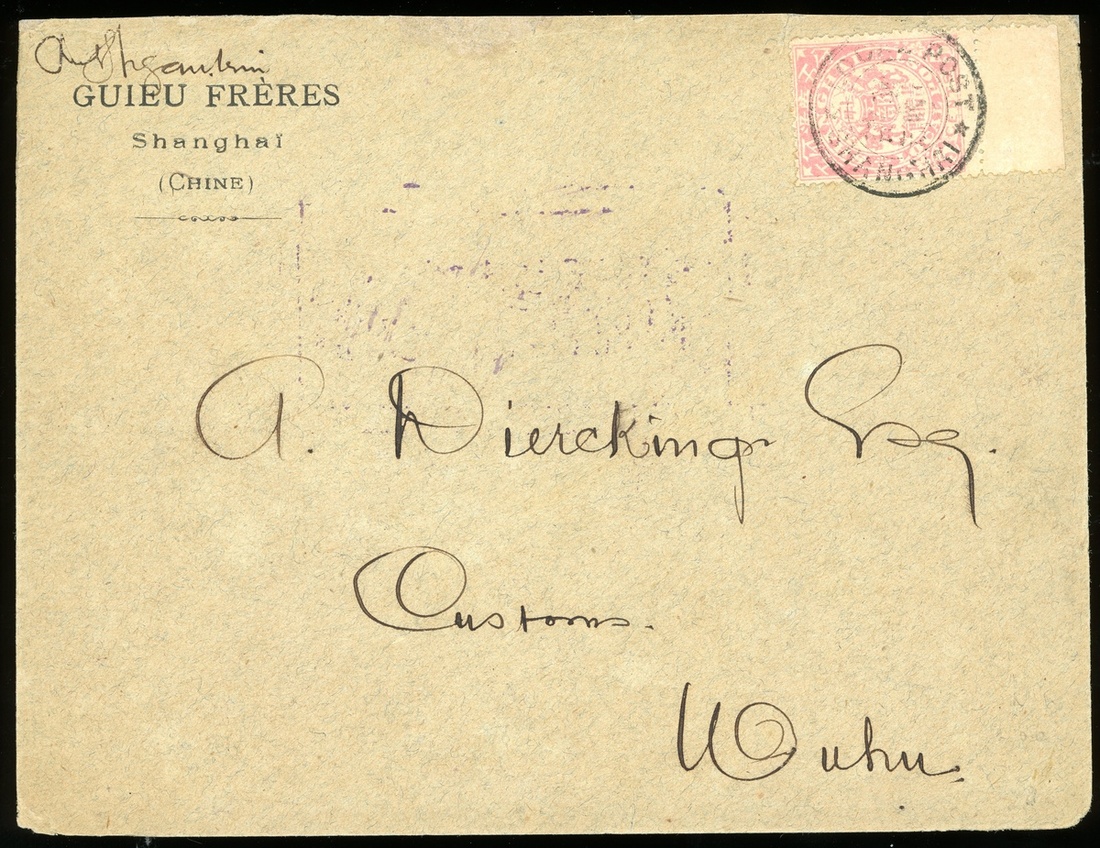 GUIEU FRÈRES
Shanghaï
(CHINE)
POST
SHANGHAI
A. Diercking Esq.
Customs.
Wuhu.